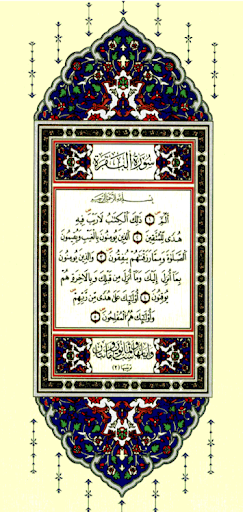 سورة البقرة
بسم الله الرحمن الرحيم
الٓمٓ ۝١ ذَٰلِكَ الْكِتَابُ لَا رَيْبَ فِيهِ
هُدًى لِّلْمُتَّقِينَ ۝٢ الَّذِينَ يُؤْمِنُونَ بِالْغَيْبِ وَيُقِيمُونَ
الصَّلَاةَ وَمِمَّا رَزَقْنَاهُمْ يُنفِقُونَ ۝٣ وَالَّذِينَ يُؤْمِنُونَ
بِمَا أُنزِلَ إِلَيْكَ وَمَا أُنزِلَ مِن قَبْلِكَ وَبِالْآخِرَةِ هُمْ
يُوقِنُونَ ۝٤ أُولَٰئِكَ عَلَىٰ هُدًى مِّن رَّبِّهِمْ
وَأُولَٰئِكَ هُمُ الْمُفْلِحُونَ ۝٥
وآياتها مائتان وست وثمانون
ترتيبها (٢)